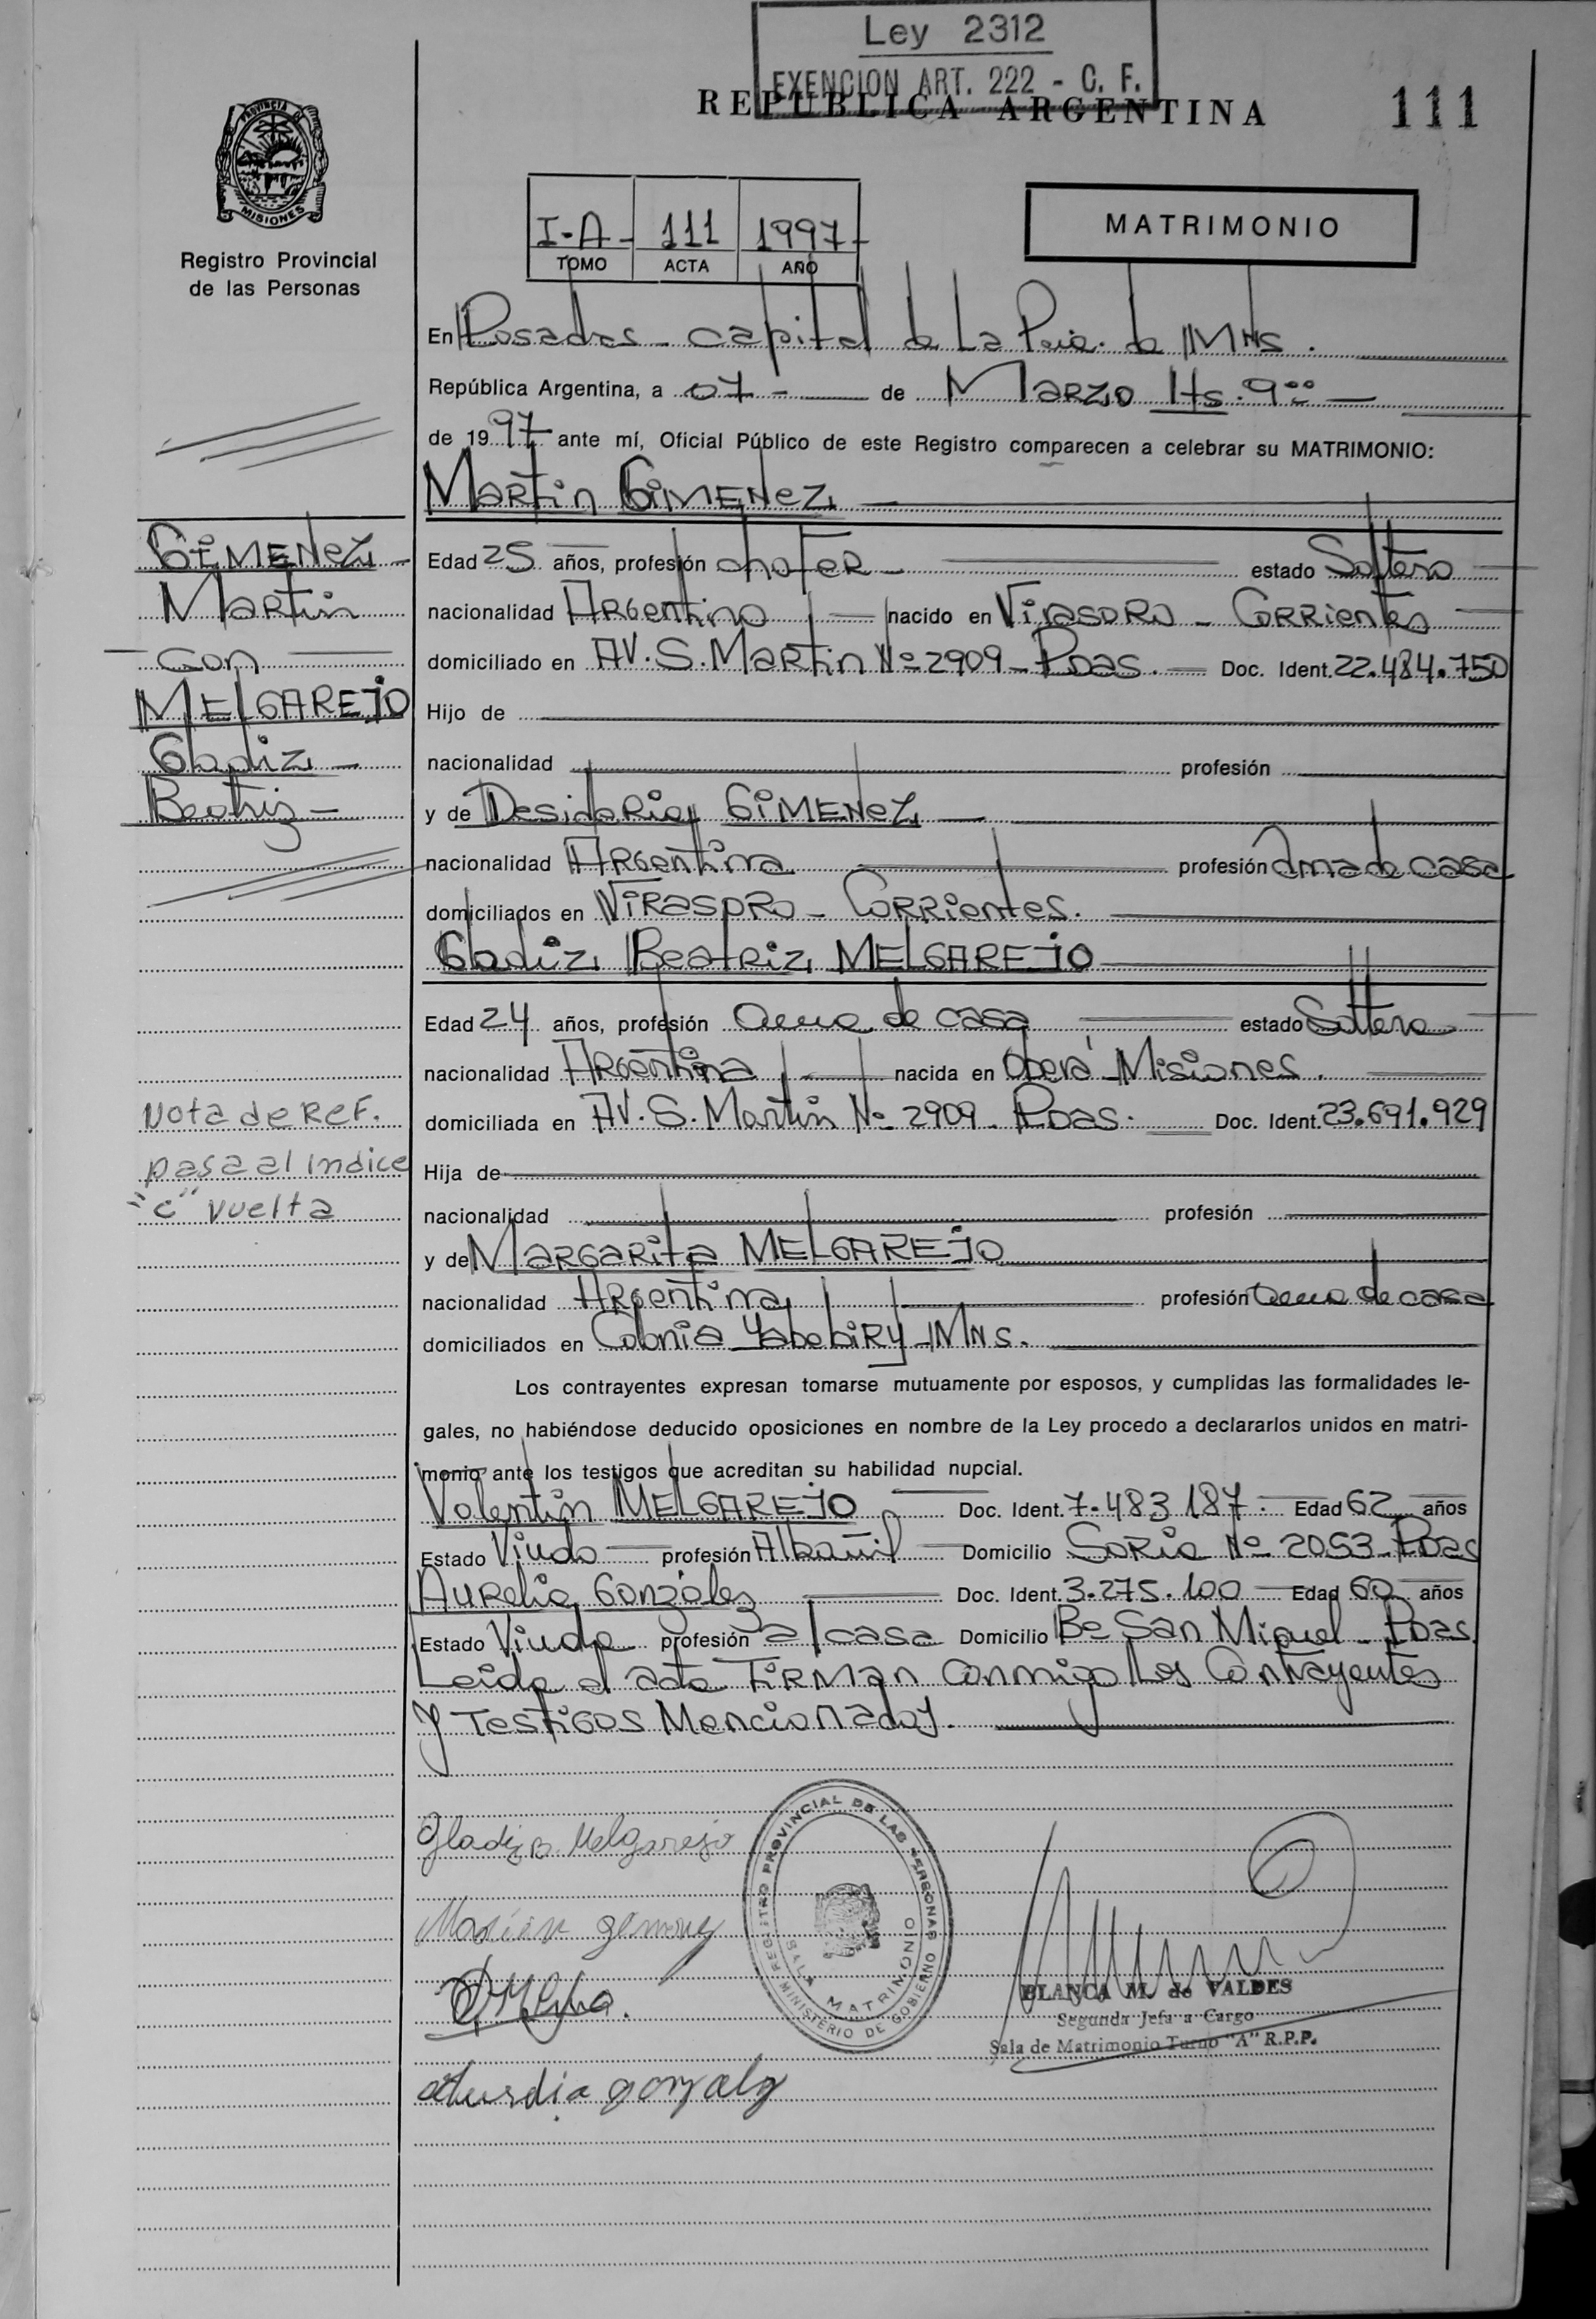 Ley 2312
EXENCION ART. 222 - C. F.
REPUBLICA ARGENTINA
111
PROVINCIA DE
MISIONES
Registro Provincial
de las Personas
I-A- 111 1997-
TOMO ACTA AÑO
MATRIMONIO
En Posadas - capital de La Pcia. de Mns.
República Argentina, a 07 - de Marzo Hs. 9:00
de 1997 ante mí, Oficial Público de este Registro comparecen a celebrar su MATRIMONIO:
Martin GiMENez
Edad 25 años, profesión chofer - estado Soltero
nacionalidad Argentino nacido en Virasoro - Corrientes
domiciliado en AV. S. Martin Nº 2909 - Pdas. Doc. Ident. 22.484.750
Hijo de
nacionalidad profesión
y de Desideria GiMENez
nacionalidad Argentina profesión Ama de casa
domiciliados en Virasoro - Corrientes.
Gladiz Beatriz MELGAREJO
Edad 24 años, profesión ama de casa estado Soltera
nacionalidad Argentina nacida en Oberá - Misiones.
domiciliada en AV. S. Martin Nº 2909 - Pdas. Doc. Ident. 23.691.929
Hija de
nacionalidad profesión
y de Margarita MELGAREJO
nacionalidad Argentina profesión ama de casa
domiciliados en Colonia Yabebiry - Mns.
Los contrayentes expresan tomarse mutuamente por esposos, y cumplidas las formalidades le-
gales, no habiéndose deducido oposiciones en nombre de la Ley procedo a declararlos unidos en matri-
monio ante los testigos que acreditan su habilidad nupcial.
Valentin MELGAREJO Doc. Ident. 7.483.187. Edad 62 años
Estado Viudo profesión Albañil Domicilio Soria Nº 2053 - Pdas
Aurelia Gonzalez Doc. Ident. 3.275.100 Edad 60 años
Estado Viuda profesión a/casa Domicilio Bº San Miguel - Pdas.
Leida el acta Firman Conmigo Los Contrayentes
y Testigos Mencionados.
GiMENez -
Martin
con
MELGAREJO
Gladiz -
Beatriz -
Nota de Ref.
pasa al Indice
"C" vuelta
Gladiz B. Melgarejo
REGISTRO PROVINCIAL DE LAS PERSONAS
SALA MATRIMONIO
MINISTERIO DE GOBIERNO
BLANCA M. de VALDES
Segunda Jefa a Cargo
Sala de Matrimonio Turno "A" R.P.P.